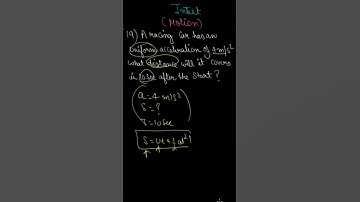 Intext
(Motion)
19) A racing car has an
uniform acceleration of 4m/s²
what distance will it covers
in 10 sec after the start?
a = 4 m/s²
S = ?
T = 10 sec
S = ut + ½ at²